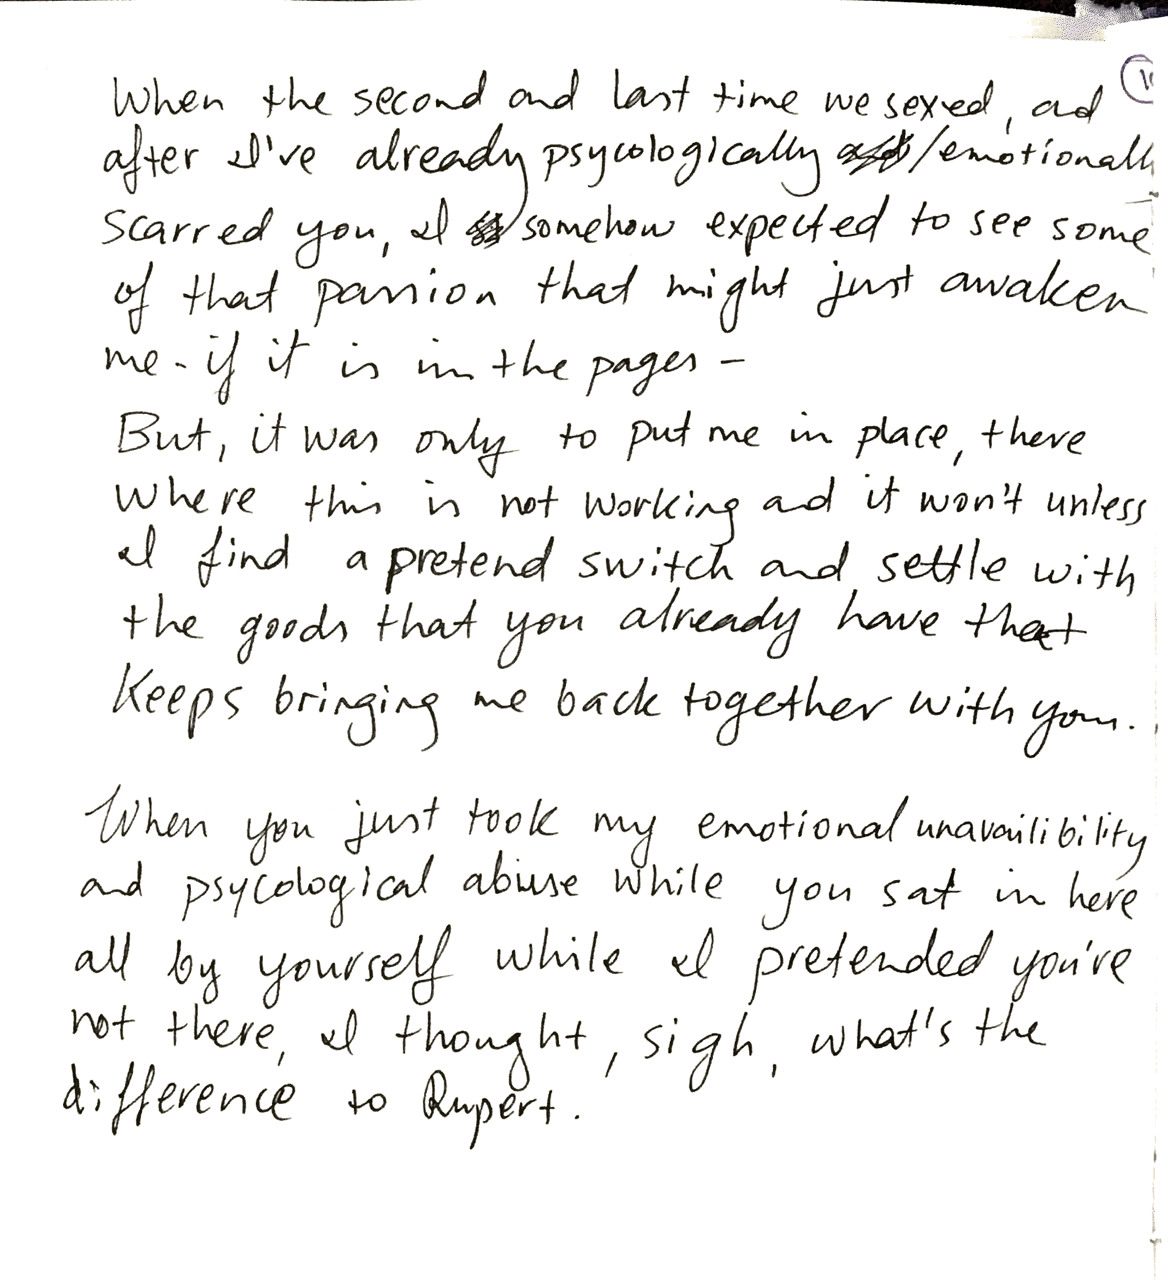 When the second and last time we sexed, ad
after I've already psycologically /emotionall
scarred you, I somehow expected to see some
of that passion that might just awaken
me - if it is in the pages -
But, it was only to put me in place, there
where this is not working ad it won't unless
I find a pretend switch and settle with
the goods that you already have that
keeps bringing me back together with you.
When you just took my emotional unavailibility
and psycological abuse while you sat in here
all by yourself while I pretended you're
not there, I thought, sigh, what's the
difference to Rupert.